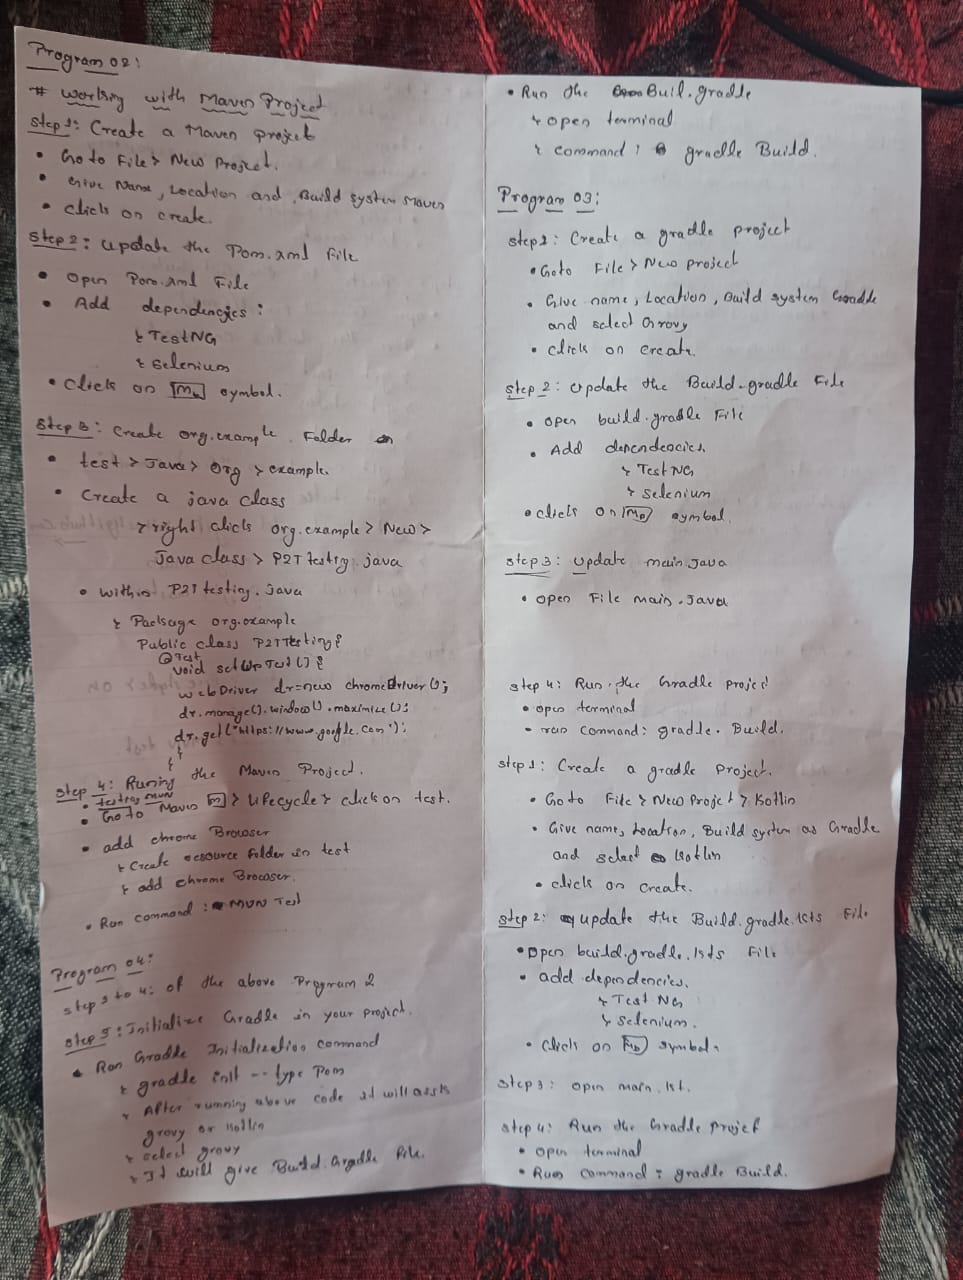 Program 02:
# Working with Maven Project
Step 1: Create a Maven project
• Go to File > New Project.
• Give Name, Location and Build system Maven
• Click on create.
Step 2: Update the Pom.xml File
• Open Pom.xml File
• Add dependencies:
TestNG
Selenium
• Click on symbol.
Step 3: Create org.example Folder
• test > Java > Org > example.
• Create a java class
> right click org.example > New >
Java class > P2Ttesting.java
• within P2Ttesting.Java
Package org.example
Public class P2TTesting {
@Test
void setUpTest() {
WebDriver dr=new chromeDriver();
dr.manage().window().maximize();
dr.get("https://www.google.com");
}
}
Step 4: Runing the Maven Project.
• testing mvn
• Go to Maven [m] > Lifecycle > click on test.
• add chrome Browser
Create resource folder in test
add chrome Browser.
• Run command: MVN Test
Program 04:
Step 1 to 4: of the above Program 2
Step 5: Initialize Gradle in your project.
• Run Gradle Initialization command
gradle init --type Pom
After running above code it will asks
grovy or kotlin
select grovy
It will give Build.Gradle File.
• Run the Buil.gradle
open terminal
command: gradle Build.
Program 03:
step1: Create a gradle project
• Goto File > New project
• Give name, Location, Build system Gradle
and select Grovy
• click on create.
Step 2: Update the Build.gradle File
• open build.gradle File
• Add dependencies.
Test NG
Selenium
• click on symbol.
Step 3: Update main.Java
• open File main.Java
step 4: Run the Gradle project
• open terminal
• run command: gradle. Build.
step 1: Create a gradle Project.
• Go to File > New Project > Kotlin
• Give name, Location, Build system as Gradle
and select Kotlin
• click on create.
Step 2: update the Build.gradle.kts File
• Open build.gradle.kts File
• add dependencies.
Test NG
Selenium.
• Click on symbol.
Step 3: open main.kt.
Step 4: Run the Gradle project
• open terminal
• Run command: gradle Build.